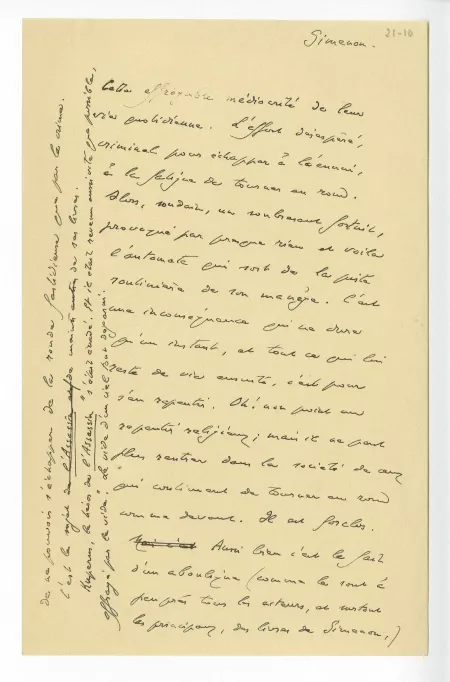 21-10
Simenon.
Cette effroyable médiocrité de leur
vie quotidienne. L'effort désespéré,
criminel pour échapper à l'ennui,
à la fatigue de tourner en rond.
Alors, soudain, un soubresaut fortuit,
provoqué par presque rien et voilà
l'automate qui sort de la piste
routinière de son manège. C'est
une inconséquence qui ne dura
qu'un instant, et tout ce qui lui
reste de vie ensuite, c'est pour
s'en repentir. Oh! non point un
repentir religieux; mais il ne peut
plus rentrer dans la société de ceux
qui continuent de tourner en rond
comme devant. Il est forclos.
Mais c'est Aussi bien c'est le fait
d'un aboulique (comme le sont à
peu près tous les acteurs, et surtout
les principaux, des livres de Simenon,)
de ne pouvoir s'échapper de la ronde fastidieuse que par le crime.
C'est le sujet de l'Assassin et de maints de ses livres.
Kuperus, le héros de l'Assassin "s'était évadé. Et il était revenu aussi vite que possible,
effrayé par le vide," le vide d'un ciel tout